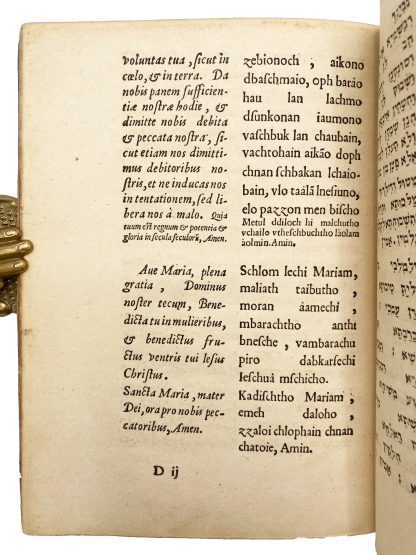 voluntas tua, sicut in
cœlo, & in terra. Da
nobis panem sufficien-
tiæ nostræ hodie, &
dimitte nobis debita
& peccata nostra, si-
cut etiam nos dimitti-
mus debitoribus no-
stris, et ne inducas nos
in tentationem, sed li-
bera nos à malo. Quia
tuum est regnum & potentia &
gloria in secula seculorũ, Amen.
Aue Maria, plena
gratia, Dominus
noster tecum, Bene-
dicta tu in mulieribus,
& benedictus fru-
ctus ventris tui Iesus
Christus.
Sancta Maria, mater
Dei, ora pro nobis pec-
catoribus, Amen.
zebionoch, aikono
dbaschmaio, oph barào
hau lan lachmo
dsunkonan iaumono
vaschbuk lan chaubain,
vachtohain aikão doph
chnan schbakan lchaio-
bain, vlo taàlã lnesiuno,
elo pazzon men bischo
Metul ddiloch hi malchutho
vchailo vtheschbuchtho làolam
àolmin. Amin.
Schlom lechi Mariam,
maliath taibutho,
moran àamechi,
mbarachtho anthi
bnesche, vambarachu
piro dabkarsechi
Ieschuà mschicho.
Kadischtho Mariam,
emeh daloho,
zzaloi chlophain chnan
chatoie, Amin.
D ij